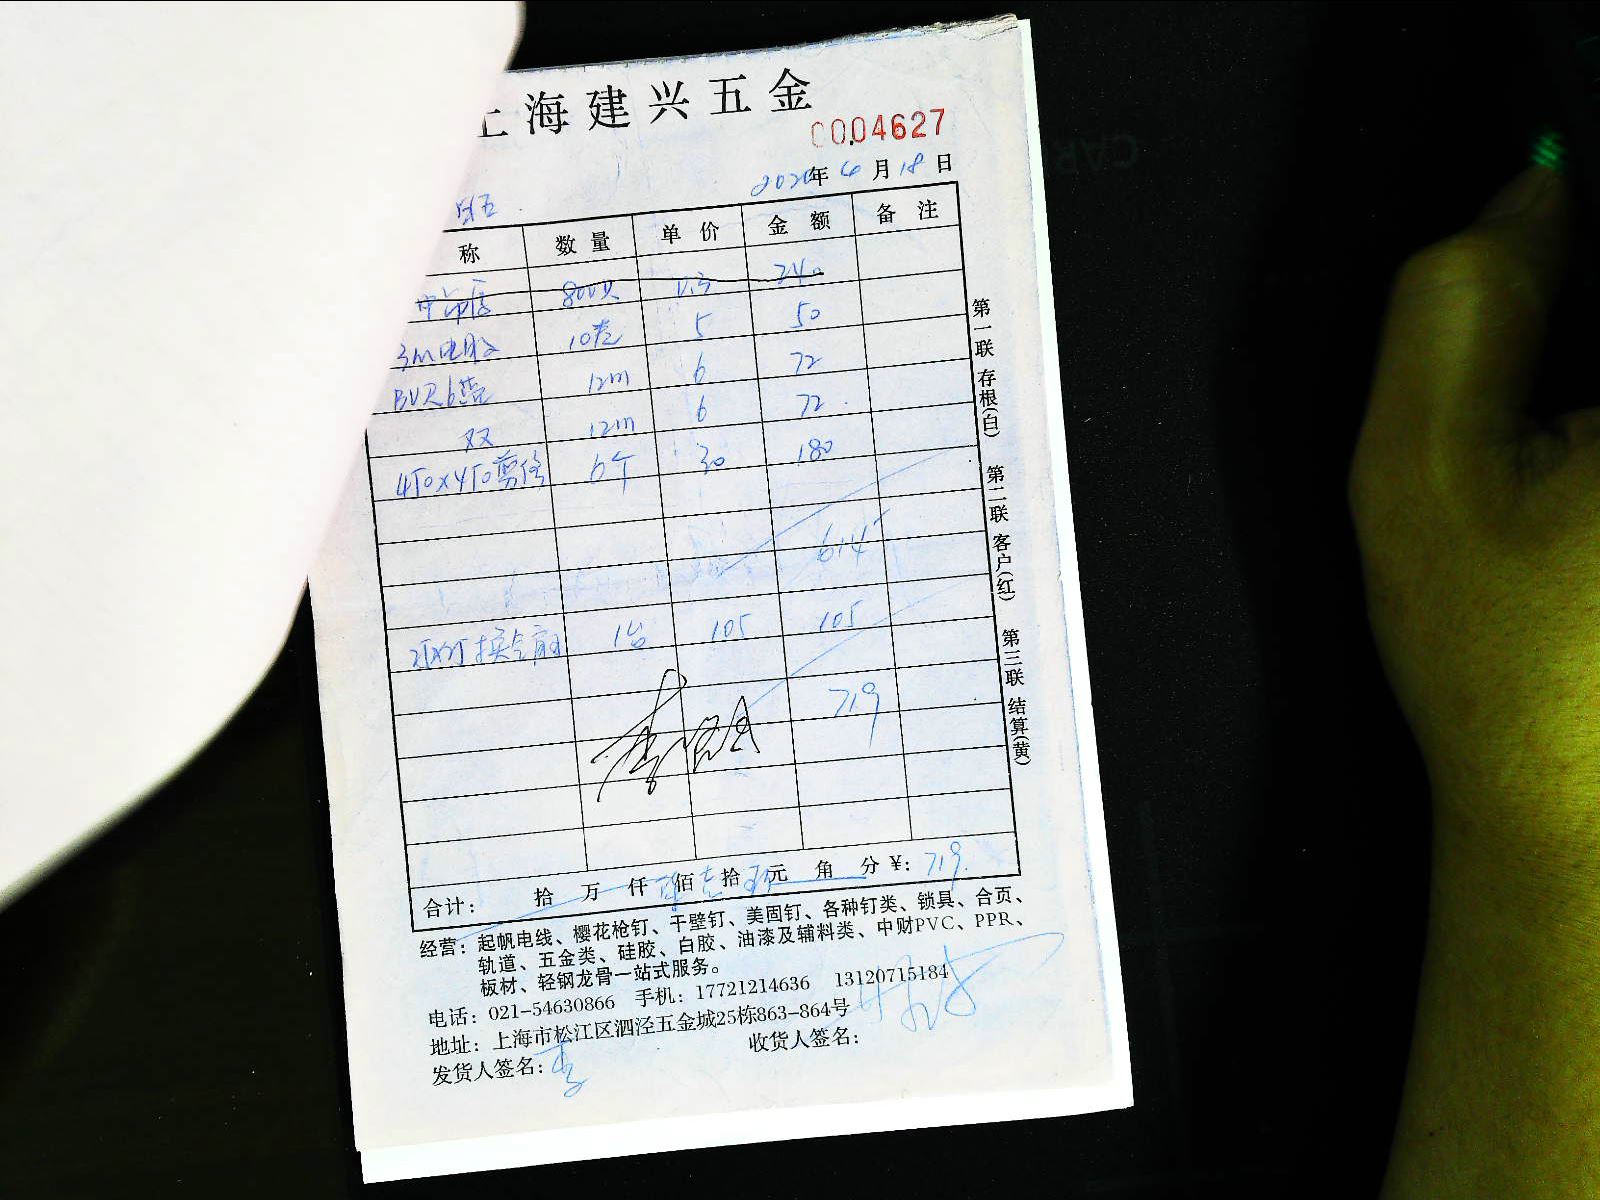 上海建兴五金
0004627
2020年6月18日
称 数量 单价 金额 备注
800只 0.3 240
3m电胶 10卷 5 50
BVR6蓝 12m 6 72
双 12m 6 72
450x450 6个 30 180
614
换气扇 1台 105 105
719
合计： 拾 万 仟 柒佰壹拾玖元 角 分 ¥：719.
经营：起帆电线、樱花枪钉、干壁钉、美固钉、各种钉类、锁具、合页、
轨道、五金类、硅胶、白胶、油漆及辅料类、中财PVC、PPR、
板材、轻钢龙骨一站式服务。
电话：021-54630866 手机：17721214636 13120715184
地址：上海市松江区泗泾五金城25栋863-864号
发货人签名：李 收货人签名：
第一联 存根(白) 第二联 客户(红) 第三联 结算(黄)